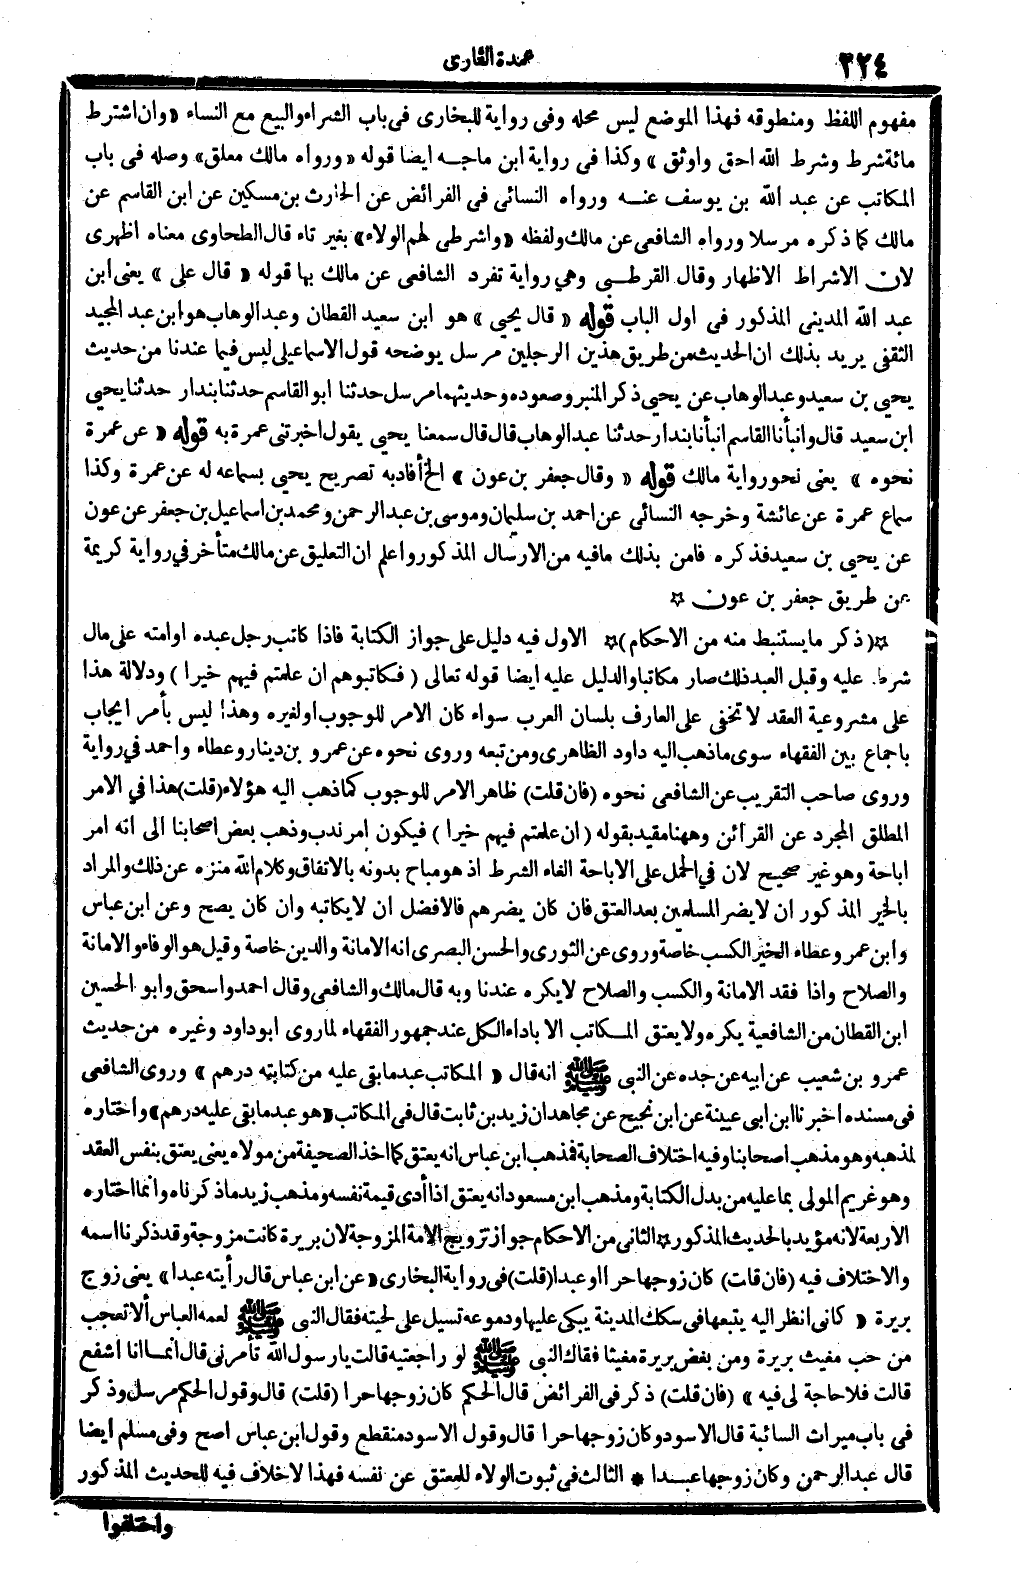 ٢٢٤
عمدة القارى
مفهوم اللفظ ومنطوقه فهذا الموضع ليس محله وفى رواية للبخارى فى باب الشراء والبيع مع النساء «وان اشترط
مائة شرط وشرط الله احق واوثق» وكذا فى رواية ابن ماجه ايضا قوله «ورواه مالك معلق» وصله فى باب
المكاتب عن عبد الله بن يوسف عنه ورواه النسائى فى الفرائض عن الحارث بن مسكين عن ابن القاسم عن
مالك كما ذكره مرسلا ورواه الشافعى عن مالك ولفظه «واشرطى لهم الولاء» بغير تاء قال الطحاوى معناه اظهرى
لان الاشراط الاظهار وقال القرطبى وهي رواية تفرد الشافعى عن مالك بها قوله «قال على» يعنى ابن
عبد الله المدينى المذكور فى اول الباب قوله «قال يحيى» هو ابن سعيد القطان وعبد الوهاب هو ابن عبد المجيد
الثقفى يريد بذلك ان الحديث من طريق هذين الرجلين مرسل يوضحه قول الاسماعيلى ليس فيما عندنا من حديث
يحيى بن سعيد وعبد الوهاب عن يحيى ذكر المنبر وصعوده وحديثهما مرسل حدثنا ابو القاسم حدثنا بندار حدثنا يحيى
ابن سعيد قال وانبأنا القاسم انبأنا بندار حدثنا عبد الوهاب قال قال سمعنا يحيى يقول اخبرتنى عمرة به قوله «عن عمرة
نحوه» يعنى نحو رواية مالك قوله «وقال جعفر بن عون» الخ أفاد به تصريح يحيى بسماعه له عن عمرة وكذا
سماع عمرة عن عائشة وخرجه النسائى عن احمد بن سليمان وموسى بن عبد الرحمن ومحمد بن اسماعيل بن جعفر عن عون
عن يحيى بن سعيد فذكره فامن بذلك مافيه من الارسال المذكور واعلم ان التعليق عن مالك متأخر في رواية كريمة
عن طريق جعفر بن عون ☆
☆(ذكر ما يستنبط منه من الاحكام)☆ الاول فيه دليل على جواز الكتابة فاذا كاتب رجل عبده او امته على مال
شرط. عليه وقبل العبد ذلك صار مكاتبا والدليل عليه ايضا قوله تعالى (فكاتبوهم ان علمتم فيهم خيرا) ودلالة هذا
على مشروعية العقد لا تخفى على العارف بلسان العرب سواء كان الامر للوجوب اولغيره وهذا ليس بأمر ايجاب
باجماع بين الفقهاء سوى ماذهب اليه داود الظاهرى ومن تبعه وروى نحوه عن عمرو بن دينار وعطاء واحمد في رواية
وروى صاحب التقريب عن الشافعى نحوه (فان قلت) ظاهر الامر للوجوب كما ذهب اليه هؤلاء (قلت) هذا في الامر
المطلق المجرد عن القرائن وههنا مقيد بقوله (ان علمتم فيهم خيرا) فيكون امر ندب وذهب بعض اصحابنا الى انه امر
اباحة وهو غير صحيح لان في الحمل على الاباحة الغاء الشرط اذ هو مباح بدونه بالاتفاق وكلام الله منزه عن ذلك والمراد
بالخير المذكور ان لا يضر المسلمين بعد العتق فان كان يضرهم فالافضل ان لا يكاتبه وان كان يصح وعن ابن عباس
وابن عمر وعطاء الخير الكسب خاصة وروى عن الثورى والحسن البصرى انه الامانة والدين خاصة وقيل هو الوفاء والامانة
والصلاح واذا فقد الامانة والكسب والصلاح لا يكره عندنا وبه قال مالك والشافعى وقال احمد واسحق وابو الحسين
ابن القطان من الشافعية يكره ولا يعتق المكاتب الا باداء الكل عند جمهور الفقهاء لما روى ابو داود وغيره من حديث
عمرو بن شعيب عن ابيه عن جده عن النبى ﷺ انه قال «المكاتب عبد مابقى عليه من كتابته درهم» وروى الشافعى
فى مسنده اخبرنا ابن ابى عيينة عن ابن نجيح عن مجاهد ان زيد بن ثابت قال فى المكاتب «هو عبد مابقى عليه درهم» واختاره
لمذهبه وهو مذهب اصحابنا وفيه اختلاف الصحابة فمذهب ابن عباس انه يعتق كما اخذ الصحيفة من مولاه يعنى يعتق بنفس العقد
وهو غريم المولى بما عليه من بدل الكتابة ومذهب ابن مسعود انه يعتق اذا أدى قيمة نفسه ومذهب زيد ماذكرناه وانما اختاره
الاربعة لانه مؤيد بالحديث المذكور ☆ الثانى من الاحكام جواز ترويج الامة المزوجة لان بريرة كانت مزوجة وقد ذكرنا اسمه
والاختلاف فيه (فان قات) كان زوجها حرا او عبدا (قلت) فى رواية البخارى «عن ابن عباس قال رأيته عبدا» يعنى زوج
بريرة «كانى انظر اليه يتبعها فى سكك المدينة يبكى عليها ودموعه تسيل على لحيته فقال النبى ﷺ لعمه العباس ألا تعجب
من حب مغيث بريرة ومن بغض بريرة مغيثا فقال النبى ﷺ لو راجعتيه قالت يارسول الله تأمرنى قال انما انا اشفع
قالت فلا حاجة لى فيه» (فان قلت) ذكر فى الفرائض قال الحكم كان زوجها حرا (قلت) قال وقول الحكم مرسل وذكر
فى باب ميراث السائبة قال الاسود وكان زوجها حرا قال وقول الاسود منقطع وقول ابن عباس اصح وفى مسلم ايضا
قال عبد الرحمن وكان زوجها عبدا * الثالث فى ثبوت الولاء للمعتق عن نفسه فهذا لا خلاف فيه للحديث المذكور
واختلفوا